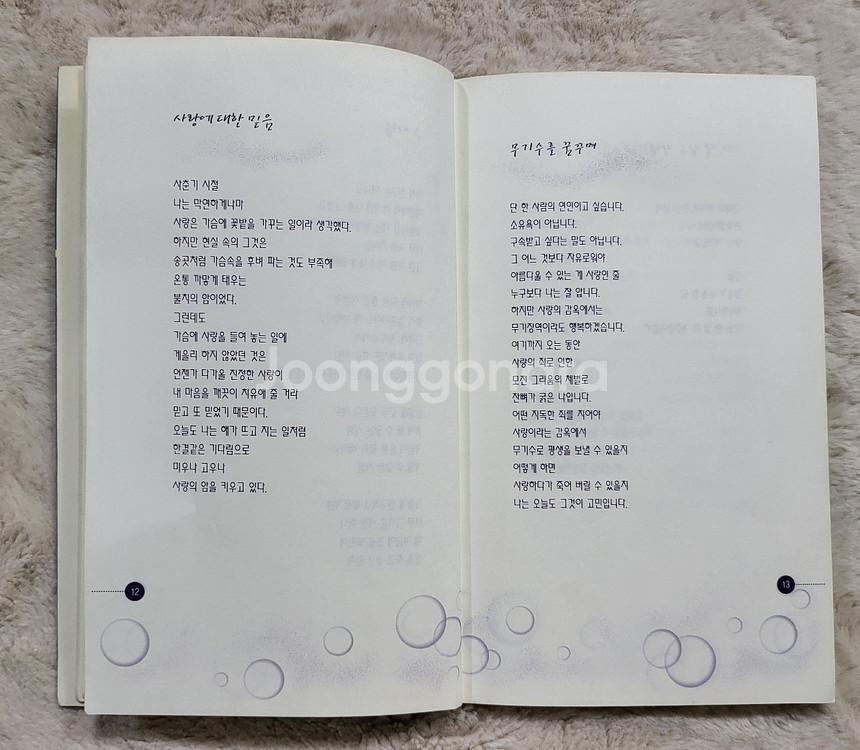 사랑에 대한 믿음
사춘기 시절
나는 막연하게나마
사랑은 가슴에 꽃밭을 가꾸는 일이라 생각했다.
하지만 현실 속의 그것은
송곳처럼 가슴속을 후벼 파는 것도 부족해
온통 까맣게 태우는
불치의 암이었다.
그런데도
가슴에 사랑을 들여 놓는 일에
게을리 하지 않았던 것은
언젠가 다가올 진정한 사랑이
내 마음을 깨끗이 치유해 줄 거라
믿고 또 믿었기 때문이다.
오늘도 나는 해가 뜨고 지는 일처럼
한결같은 기다림으로
미우나 고우나
사랑의 암을 키우고 있다.
12
무기수를 꿈꾸며
단 한 사람의 연인이고 싶습니다.
소유욕이 아닙니다.
구속받고 싶다는 말도 아닙니다.
그 어느 것보다 자유로워야
아름다울 수 있는 게 사랑인 줄
누구보다 나는 잘 압니다.
하지만 사랑의 감옥에서는
무기징역이라도 행복하겠습니다.
여기까지 오는 동안
사랑의 죄로 인한
모진 그리움의 체벌로
잔뼈가 굵은 나입니다.
어떤 지독한 죄를 지어야
사랑이라는 감옥에서
무기수로 평생을 보낼 수 있을지
어떻게 하면
사랑하다가 죽어 버릴 수 있을지
나는 오늘도 그것이 고민입니다.
13
Joonggonara